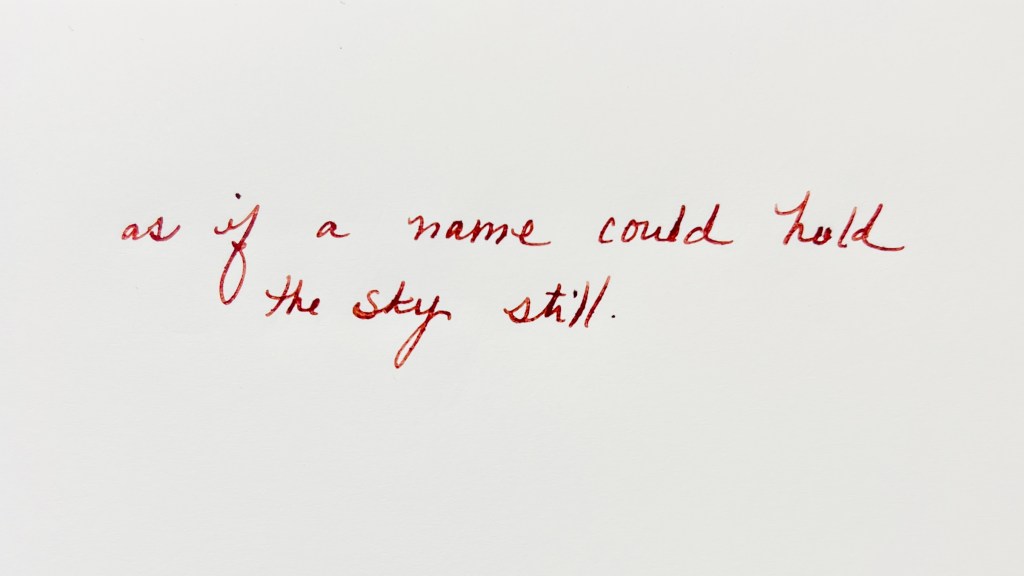 as if a name could hold
the sky still.